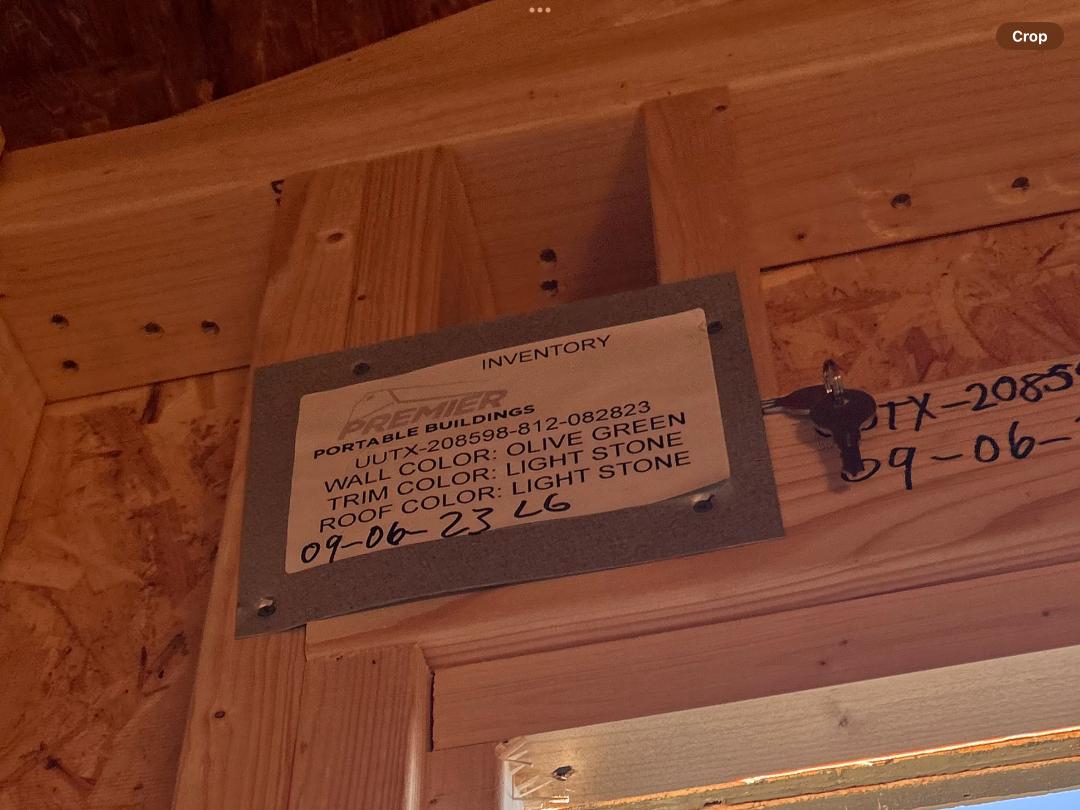 Crop
INVENTORY
PREMIER
PORTABLE BUILDINGS
UUTX-208598-812-082823
WALL COLOR: OLIVE GREEN
TRIM COLOR: LIGHT STONE
ROOF COLOR: LIGHT STONE
09-06-23 LG
UTX-20859
09-06-